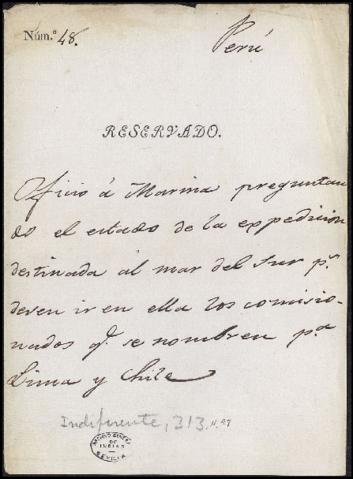 Núm.º 48.
Perú
RESERVADO.
Oficio á Marina preguntan
do el estado de la expedicion
destinada al mar del Sur pr.
deven ir en ella los comisio-
nados q.e se nombren p.a
Lima y Chile
Indiferente, 313
ARCHIVO GENERAL
DE
INDIAS
SEVILLA